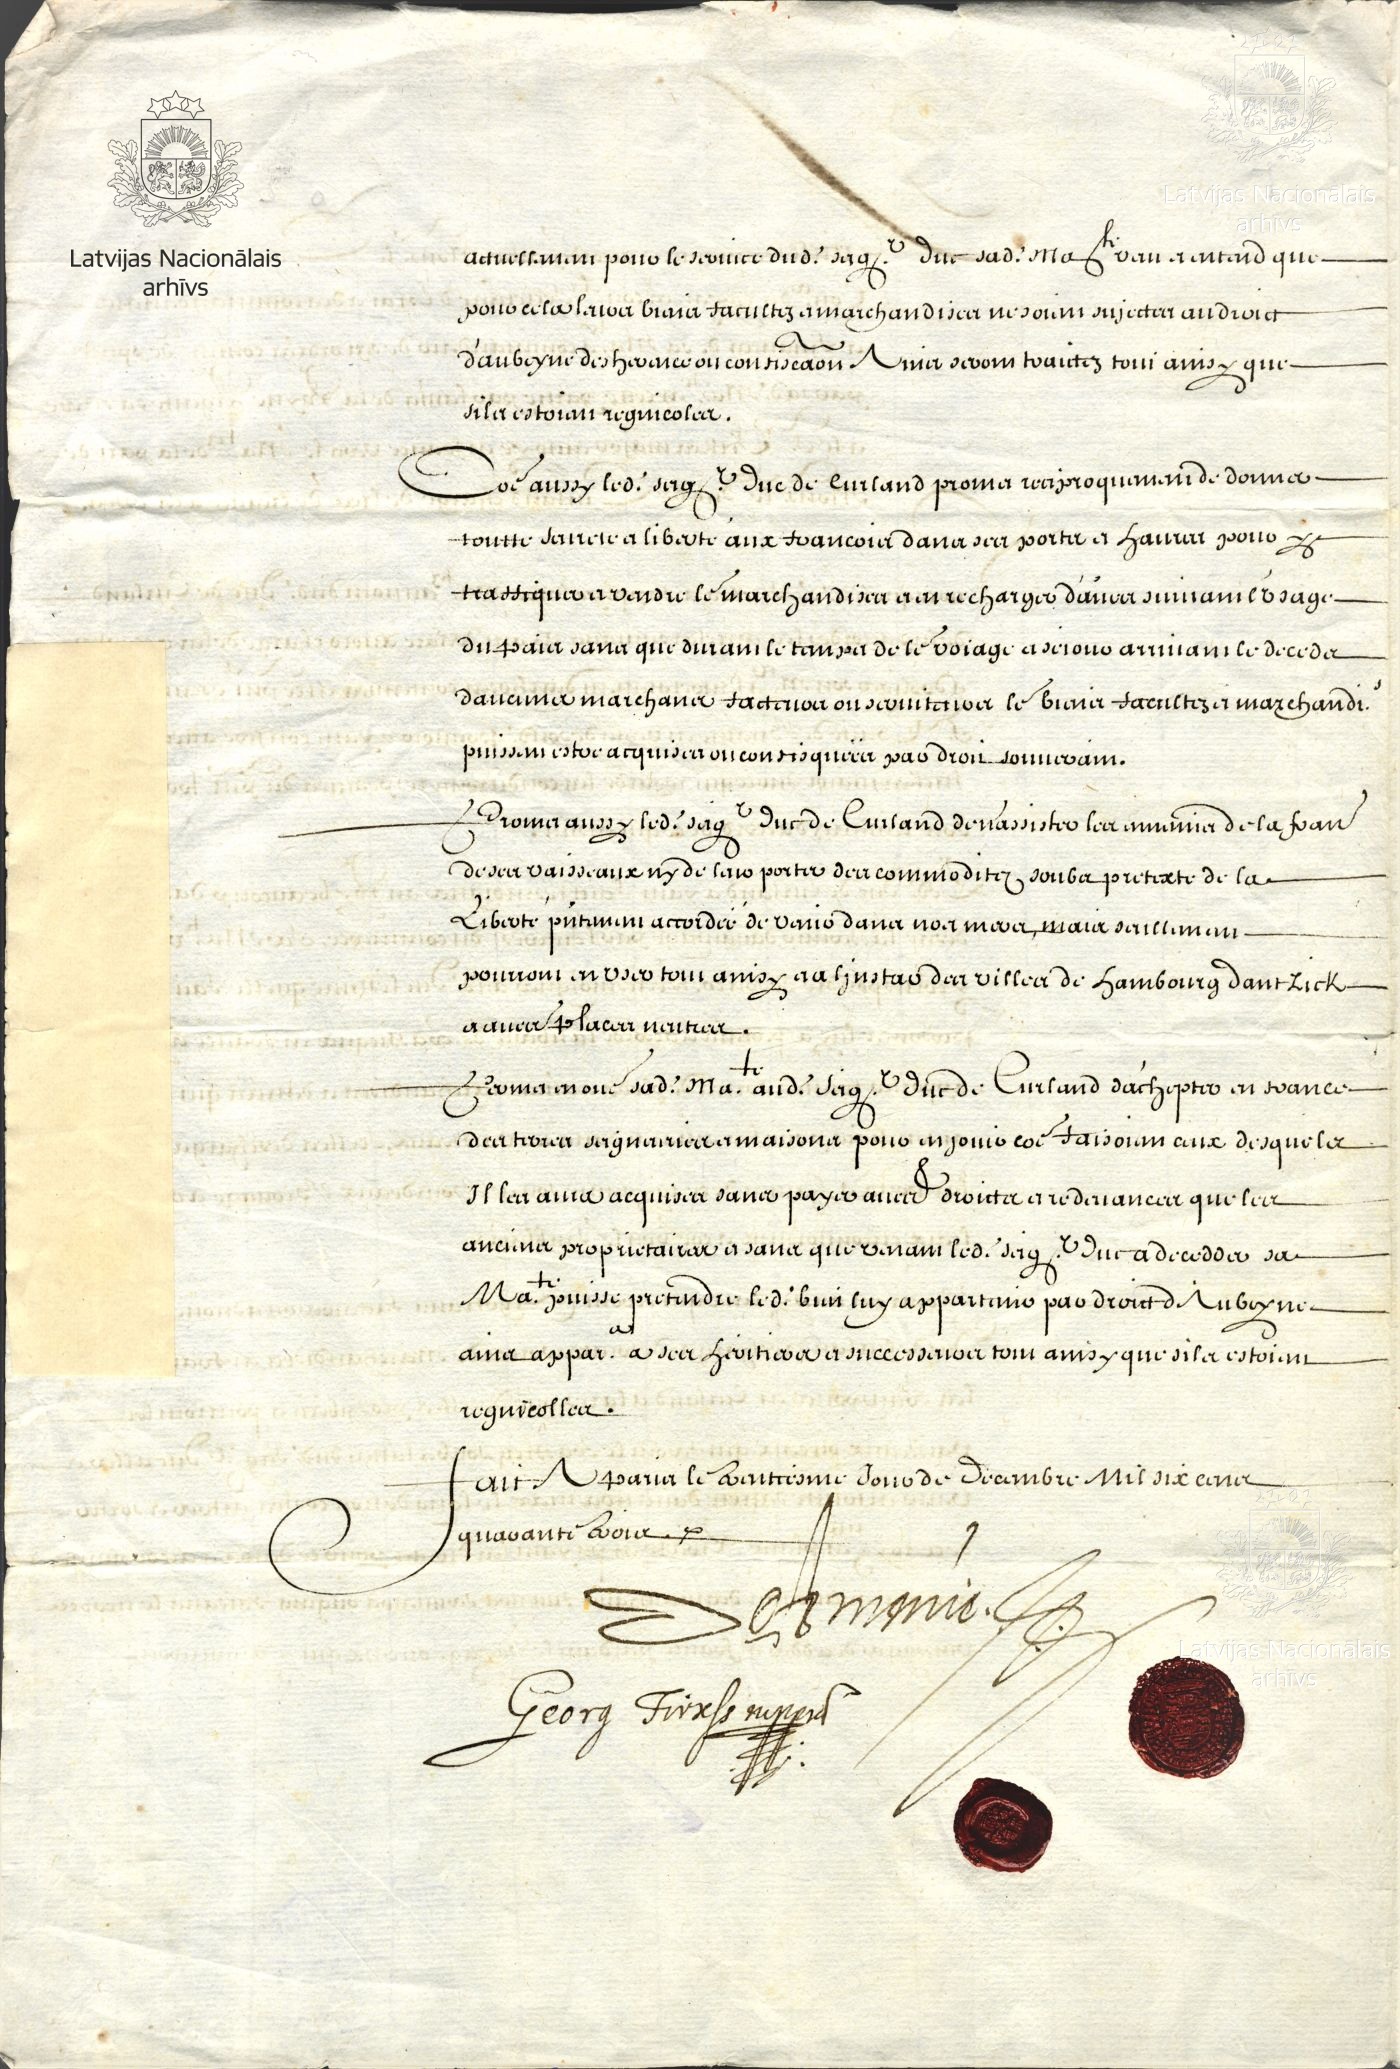 Latvijas Nacionālais
arhīvs
Latvijas Nacionālais
arhīvs
actuellement pour le service dud. seigr. Duc sad. Mate veut et entend que
pour cela leurs biens facultez et marchandises ne soient sujectes au droict
d'aubeyne desherence ou confiscaon Ains seront traictez tout ainsy que
silz estoient regnicoles.
Coe aussy led. seigr. Duc de Curland promet reciproquement de donner
toutte seurete et liberté aux francois dans ses portz et havres pour y
traffiquer et vendre le marchandises et en recharger d'autres suivant l'usage
du Païs sans que durant le temps de le voiage et sejour arrivant le decedz
daucuns marchans facteurs ou serviteurs le biens facultez et marchandi.s
puissent estre acquises ou confisquées par droit souverain.
Promet aussy led. seigr Duc de Curland de n'assister les ennemis de la fran
de ses vaisseaux ny de leur porter des commoditez soubz pretexte de la
Liberté pntement accordée de venir dans nos mers, mais seullement
pourront en user tout ainsy et a l'instar des villes de Hambourg Dantzick
et autres Places neutres.
Permet en oue sad. Mate. aud. seigr. Duc de Curland d'achepter en france
des terres seigneuries et maisons pour en jouir coe faisoient ceux desquelz
Il les aura acquises sans payer autres droictz et redevances que les
anciens proprietaires et sans que venant led. seigr. Duc a decedder sa
Mate. puisse pretendre led. bien luy appartenir par droict d'Aubeyne
ains appar.a a ses heritiers et successeurs tout ainsy que silz estoient
regnicolles.
Fait A Paris le trentiesme Jour de Decembre Mil six cens
quarante trois.
De Lomenie.
Georg Fircks
Latvijas Nacionālais
arhīvs